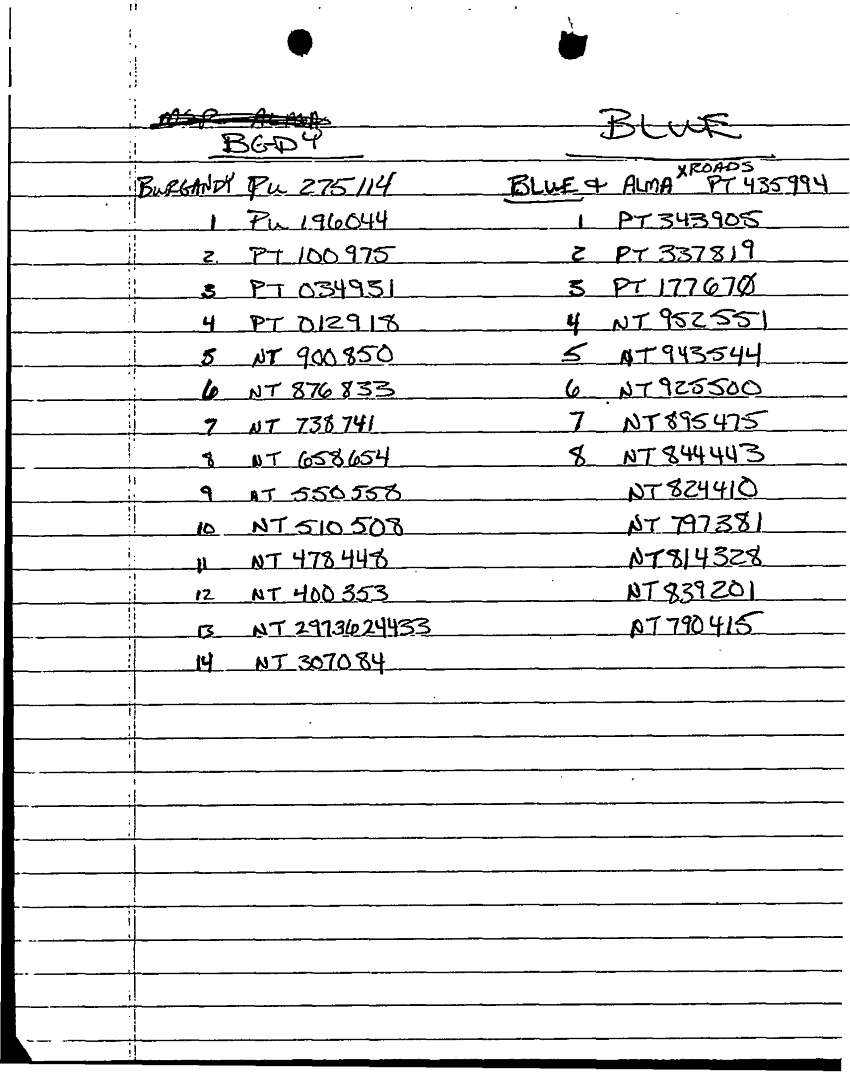 MSR ALMA
BGDY
BURGANDY PU 275114
1 PU 196044
2 PT 100975
3 PT 034931
4 PT 012918
5 NT 900850
6 NT 876833
7 NT 738741
8 NT 658654
9 NT 550558
10 NT 510508
11 NT 478448
12 NT 400353
13 NT 2973624433
14 NT 307084
BLUE
BLUE & ALMA XROADS PT 435994
1 PT 343905
2 PT 337819
3 PT 177670
4 NT 952551
5 NT 943544
6 NT 925500
7 NT 895475
8 NT 844443
NT 824410
NT 797381
NT 814328
NT 839201
NT 790415